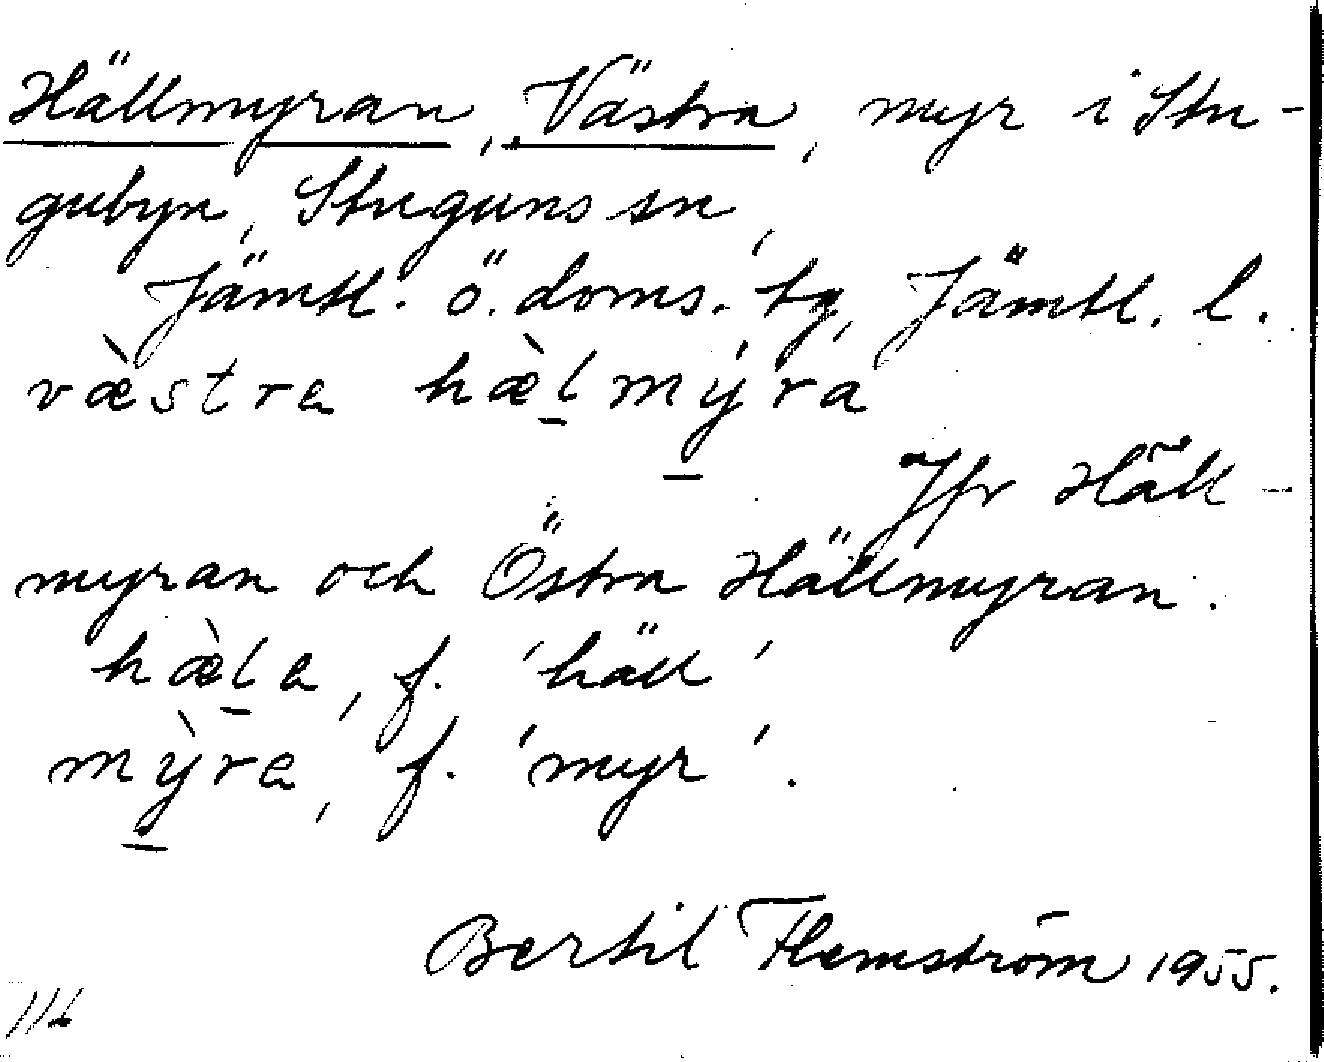 Hällmyran, Västra, myr i Stu-
gubyn, Stuguns sn,
Jämtl. ö. doms. tg, Jämtl. l.
væ̀stra hæ̀l̲mẏ̲ra
Jfr Häll-
myran och Östra Hällmyran.
hæ̀l̲a, f. 'häll'
mỳ̲ra, f. 'myr'.
Bertil Flemström 1955.